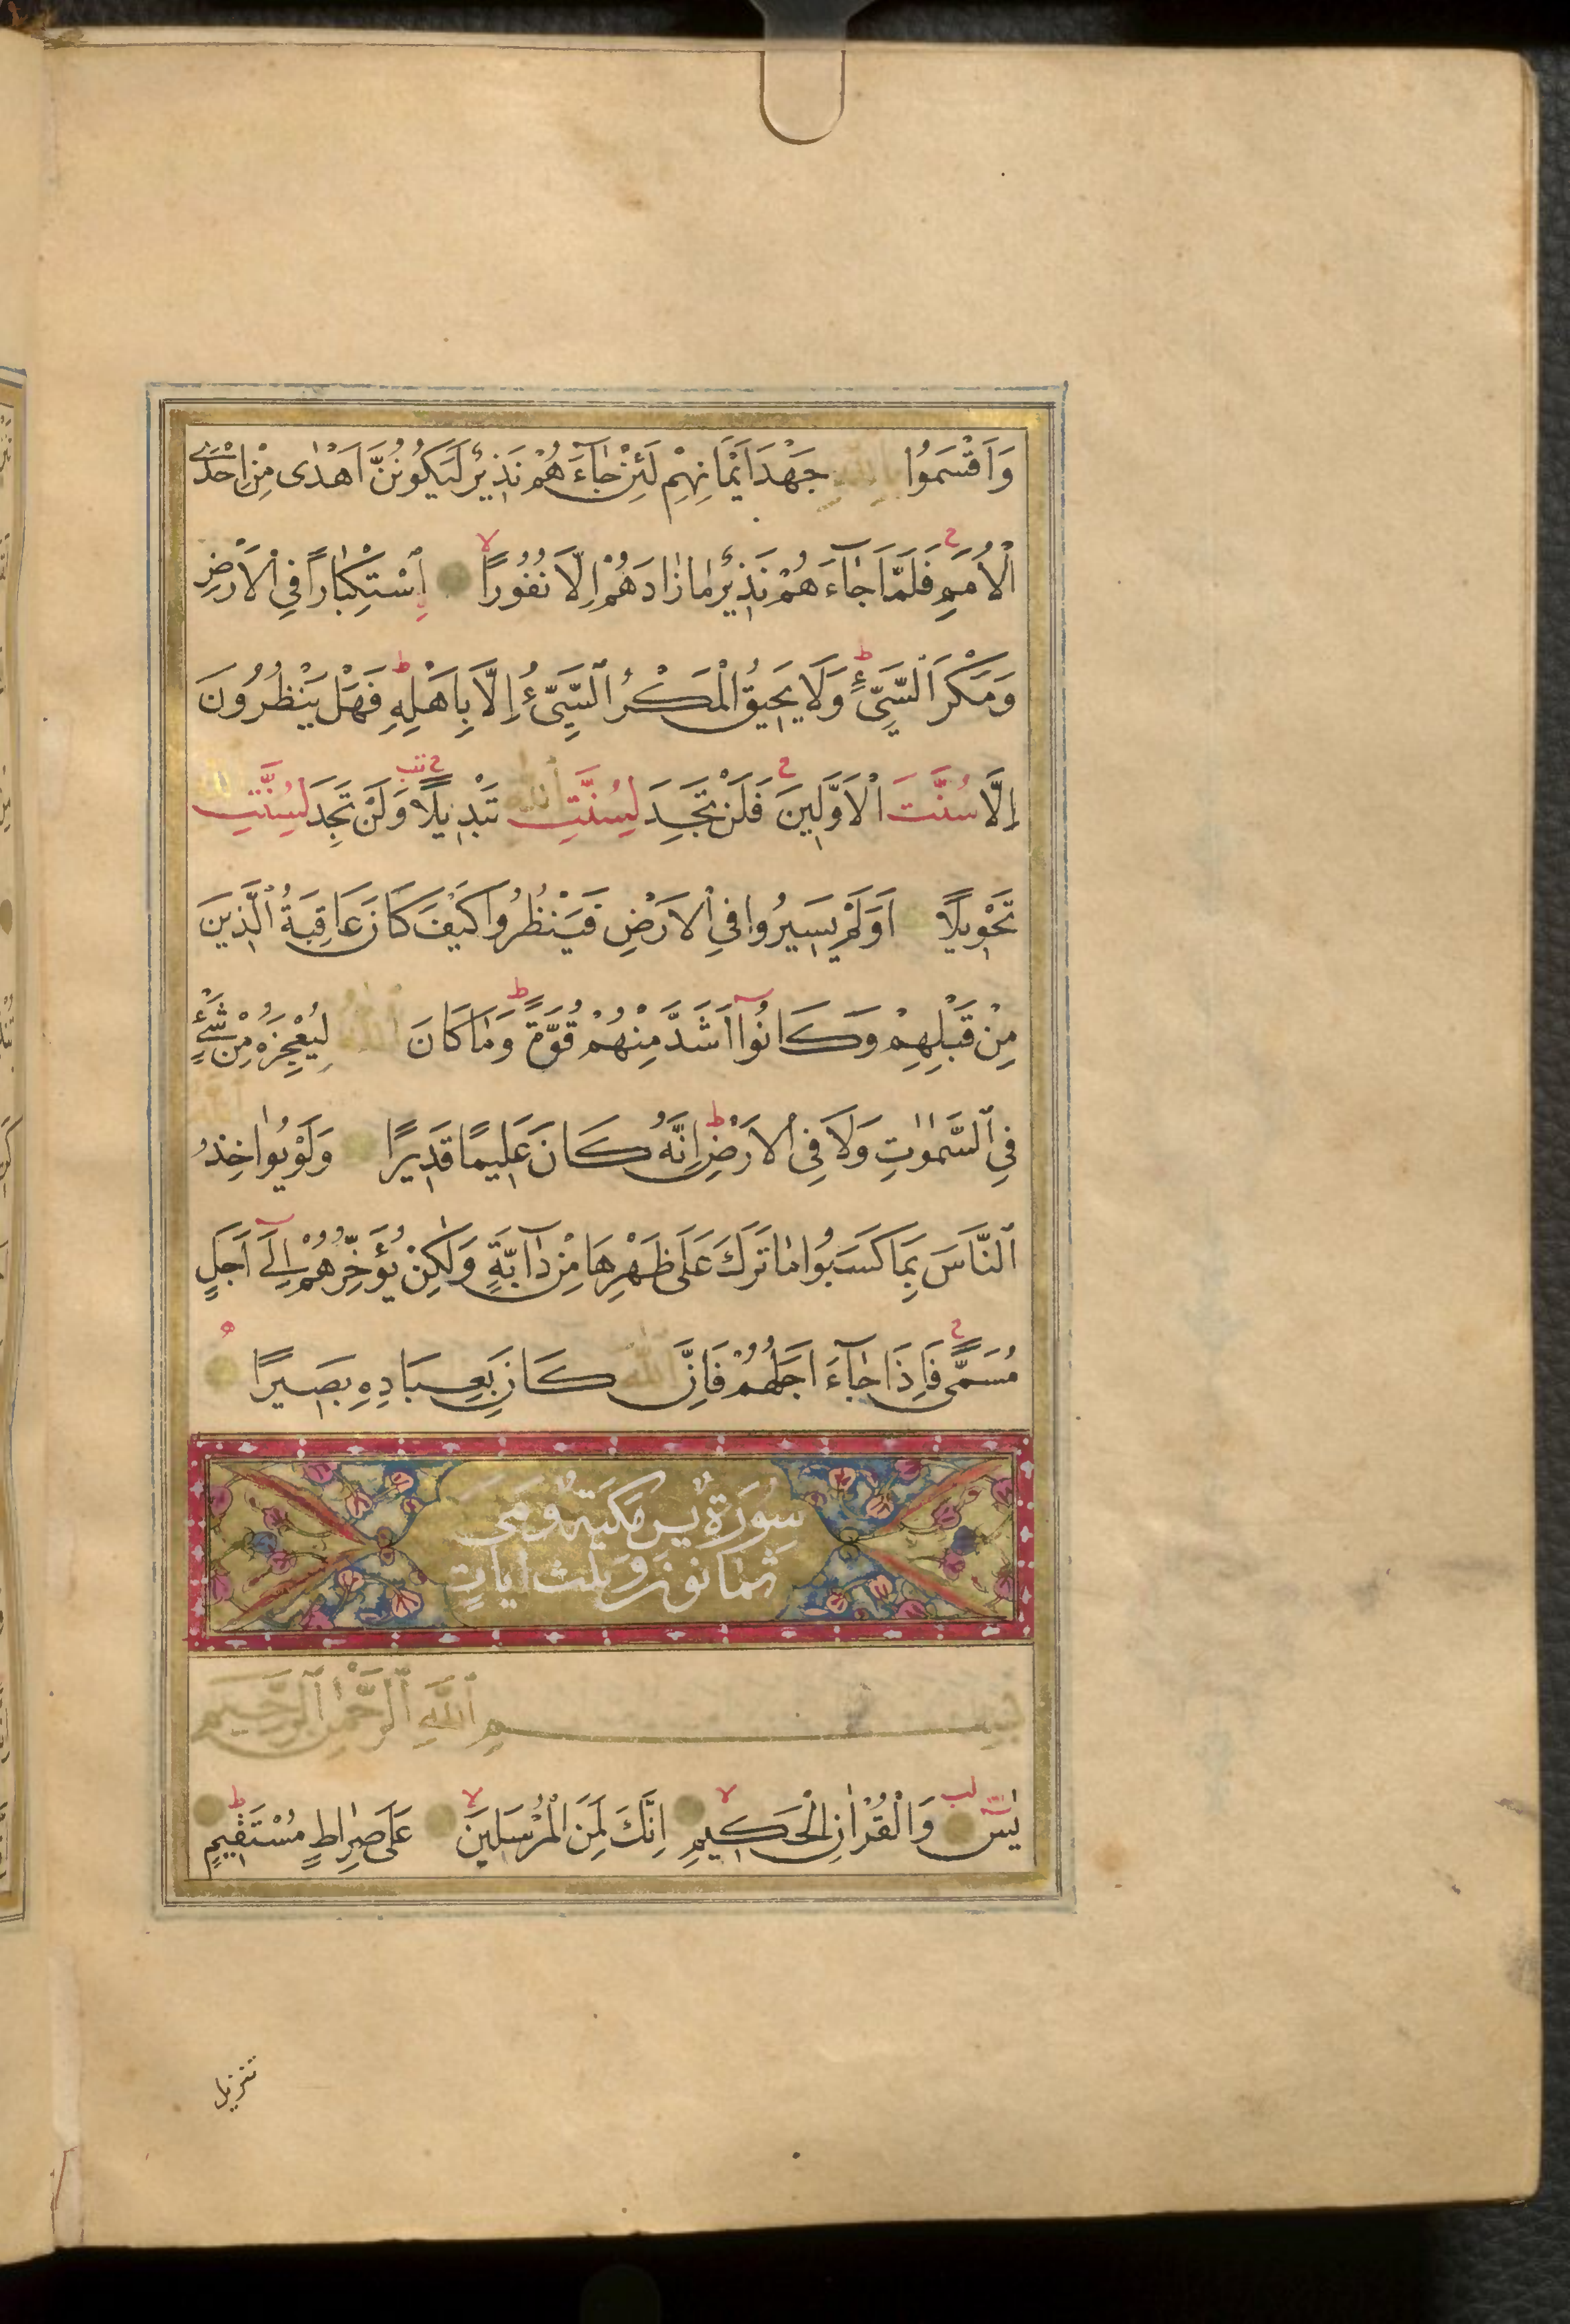 وَاَقْسَمُوا بِاللّٰهِ جَهْدَ اَيْمَانِهِمْ لَئِنْ جَٓاءَهُمْ نَذِيرٌ لَيَكُونُنَّ اَهْدٰى مِنْ اِحْدَى
الْاُمَمِ ح فَلَمَّا جَٓاءَهُمْ نَذِيرٌ مَا زَادَهُمْ اِلَّا نُفُورًا لا اِسْتِكْبَارًا فِي الْاَرْضِ
وَمَكْرَ السَّيِّئِ ط وَلَا يَحِيقُ الْمَكْرُ السَّيِّئُ اِلَّا بِاَهْلِهِ ط فَهَلْ يَنْظُرُونَ
اِلَّا سُنَّتَ الْاَوَّلِينَ ح فَلَنْ تَجِدَ لِسُنَّتِ اللّٰهِ تَبْدِيلًا ح وَلَنْ تَجِدَ لِسُنَّتِ اللّٰهِ
تَحْوِيلًا اَوَلَمْ يَسِيرُوا فِي الْاَرْضِ فَيَنْظُرُوا كَيْفَ كَانَ عَاقِبَةُ الَّذِينَ
مِنْ قَبْلِهِمْ وَكَانُٓوا اَشَدَّ مِنْهُمْ قُوَّةً ط وَمَا كَانَ اللّٰهُ لِيُعْجِزَهُ مِنْ شَيْءٍ
فِي السَّمٰوَاتِ وَلَا فِي الْاَرْضِ ط اِنَّهُ كَانَ عَلِيمًا قَدِيرًا وَلَوْ يُوَاخِذُ اللّٰهُ
النَّاسَ بِمَا كَسَبُوا مَا تَرَكَ عَلَى ظَهْرِهَا مِنْ دَٓابَّةٍ وَلٰكِنْ يُؤَخِّرُهُمْ اِلَٓى اَجَلٍ
مُسَمًّى ح فَاِذَا جَٓاءَ اَجَلُهُمْ فَاِنَّ اللّٰهَ كَانَ بِعِبَادِهِ بَصِيرًا ه
سُورَةُ يس مَكِّيَّةٌ وَهِيَ
ثمانون وثلث ايات
بِسْمِ اللّٰهِ الرَّحْمٰنِ الرَّحِيمِ
يٰسٓ لب وَالْقُرْاٰنِ الْحَكِيمِ لا اِنَّكَ لَمِنَ الْمُرْسَلِينَ لا عَلَى صِرَاطٍ مُسْتَقِيمٍ ط
تنزيل